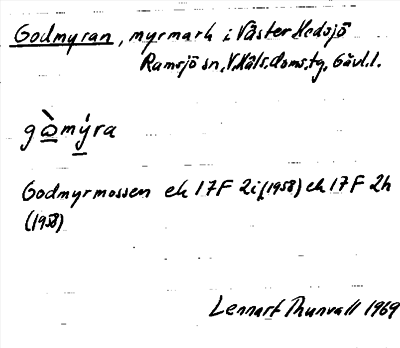 Godmyran, myrmark i Väster Hedsjö
Ramsjö sn, V.Häls.doms.tg, Gävl.l.
gòmýra
Godmyrmossen ek 17F 2i (1958) ek 17F 2h
(1958)
Lennart Thunvall 1969